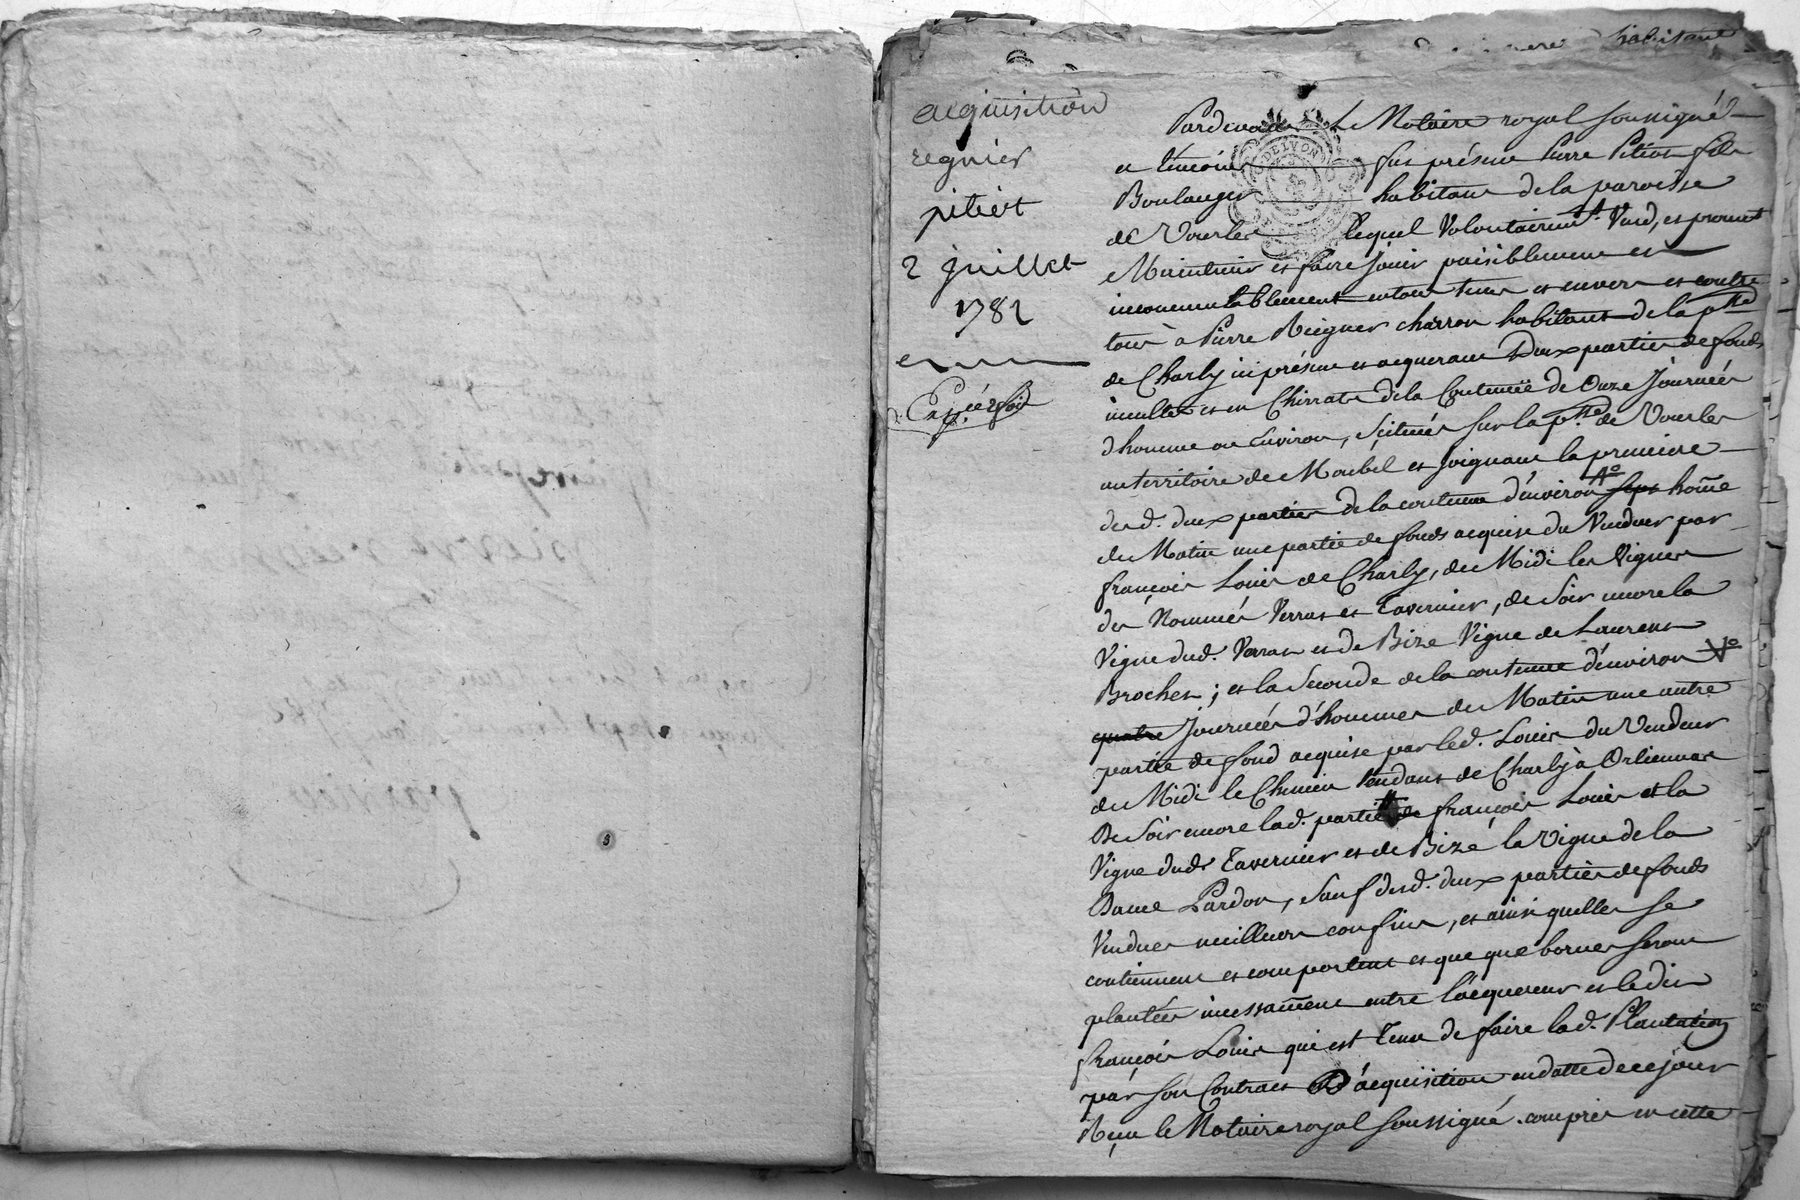 habitant
acquisition
regnier
pitiot
2 juillet
1782
Pardevant Le Notaire royal soussigné
et témoins fut présent Pierre Pitiot fils
Boulanger habitant de la paroisse
de Vourles lequel Volontairemt. Vend, et promet
Maintenir et faire jouir paisiblement et
incommutablement entous tems et envers et contre
tous à Pierre Reigner charron habitant de la psse
de Charly ici présent et acquerant Deux parties de fonds
incultes et en Chirrats de la Contenue de Onze Journées
d'homme ou Environ, scituées sur la psse. de Vourles
au territoire de Moubel et joignant la premiere
desd. deux parties de la contenue d'environ sept home
de Matin une partie de fonds acquise du Vendeur par
françois Louis de Charly, de Midi les Vignes
des Nommés Verras et Tavernier, de Soir encore la
Vigne dud. Verras et de Bize Vigne de Laurent
Brochet ; et la Seconde de la contenue d'environ
quatre Journées d'hommes de Matin une autre
partie de fond acquise par led. Louis du Vendeur
de Midi le Chemin tendant de Charly à Orlienas
De Soir encore lad. partie de françois Louis et la
Vigne dud. Tavernier et de Bize la Vigne de la
Dame Pardon, Sauf desd. deux parties de fonds
Vendues meilleurs confins, et ainsi quelles se
contiennent et comportent et que que bornes seront
plantées incessament entre l'acquereur et ledit
françois Louis qui est Tenu de faire lad. Plantation
par son Contract D'acquisition en datte de ce jour
Reçu le Notaire royal soussigné. compris en cette